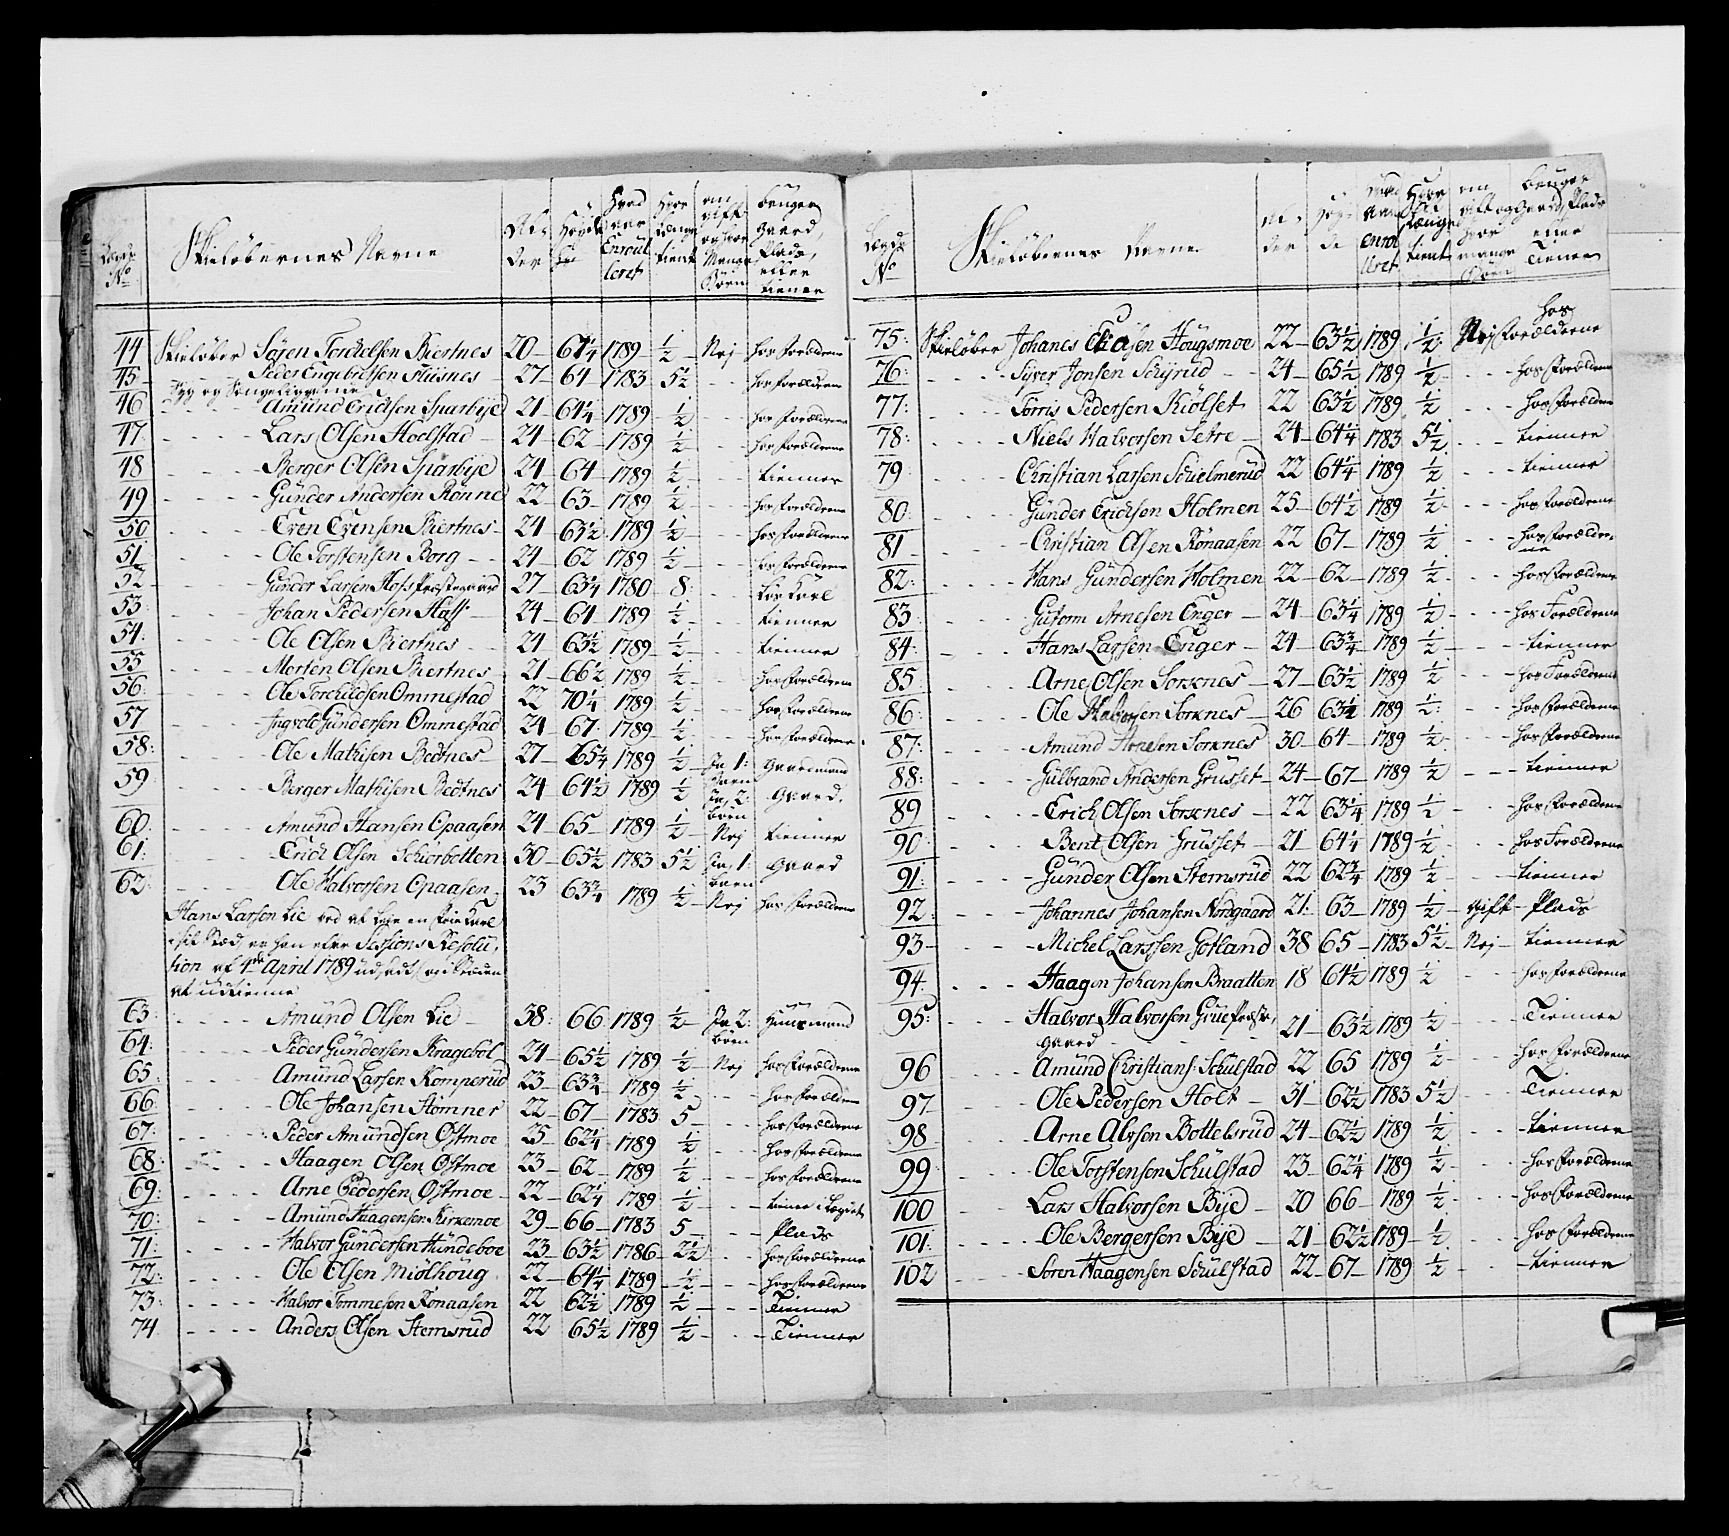 No Skieløbernes Navne Alder Høyde Hvad aar Enroulleret Hvor længe tient om gift og hvor Mange Børn bruger Gaard, Plads, eller tiener
44 Skieløber Sojen Torchelsen Kiertnes 20 61 1/4 1789 1/2 Nej hos Forældrene
45 Peder Engebretsen 27 64 1783 5 1/2 hos Forældrene
Syg og Sengeliggende
46 Amund Erichsen Sparbye 21 64 1/4 1789 1/2 hos Forældrene
47: Lars Olsen Hoelstad 24 62 1789 1/2 hos Forældrene
48 Berger Olsen Sparbye 24 64 1789 1/2 tienner
49 Gunder Andersen Rønne 22 63 1789 1/2 hos Forældrene
50 Even Evensen Kiertnes 24 63 1/2 1789 1/2 hos Forældrene
51 Ole Torstensen Borg 24 62 1789 1/2 hos Forældrene
52 Gunder Larsen Hofs Præstegaard 27 63 1/4 1780 8: Loskarl
53: Johan Pedersen Hoff 24 64 1789 1/2 tienner
54: Ole Olsen Kiertnes 24 63 1/2 1789 1/2 tienner
55 Morten Olsen Kiertnes 21 66 1/2 1789 1/2 hos Forældrene
56: Ole Torchildsen Ommestad 22 70 1/4 1789 1/2 hos Forældrene
57 Ingvold Gundersen Ommestad 24 67 1789 1/2 hos Forældrene
58: Ole Mathisen Bedtnes 27 65 1/4 1789 1/2 Ja 1: Barn Gaardmand
59 Berger Mathisen Bedtnes 24 64 1/2 1789 1/2 Ja 2: børn Gaard.
60: Amund Hansen Opaasen 24 65 1789 1/2 Nej tienner
61: Erich Olsen Schierbotten 30 65 1/2 1783 5 1/2 Ja 1: barn Gaard
62: Ole Halvorsen Opaasen 23 63 3/4 1789 1/2 Nej hos Forældrene
Hans Larsen Lie ved at leje en Frie Karl
i sit Sted, er han efter Sessions Resolu,
tion af 4de April 1789 udslettet og i Støden
at udtienne
63: Amund Olsen Lie 38: 66 1789 1/2 Ja 2: børn Huusmand
64: Peder Gundersen Kragebøl 24 65 1/2 1789 1/2 Nej hos Forældrene
65: Amund Larsen Komperud 23 63 3/4 1789 1/2 hos Forældrene
66: Ole Johansen Stømner 22 67 1783 5 hos Forældrene
67: Peder Amundsen Østmoe 25 62 1/4 1789 1/2 hos Forældrene
68: Haagen Olsen Østmoe 23 62 1789 1/2 hos Forældrene
69: Arne Pedersen Østmoe 22 62 1/4 1789 1/2 tiener i
70: Amund Haagensen Kirkemoe 29 66 1783 5 Plads
71: Halvor Gundersen Hundeboe 23 63 1/2 1786 2 1/2 hos Forældrene
72: Ole Olsen Miølhoug 22 64 1/4 1789 1/2 hos Forældrene
73: Halvor Tommesen Rønaasen 22 62 1/2 1789 1/2 Tienner
74 Anders Olsen Stemsrud 22 65 1/2 1789 1/2 Tienner
No Skieløbernes Navne Alder Høyde Hvad Aar enrolleret Hvor længe tient om gift og hvor mange Børn bruger Gaard, Plads eller Tiener
75: Skieløber Johanes Olsen Hougsmoe 22 63 1/2 1789 1/2 Nej hos Forældrene
76: Syver Jonsen Schyrud 24 65 1/2 1789 1/2 hos Forældrene
77: Torris Pedersen Kiølset 22 63 1/2 1789 1/2 hos Forældrene
78: Niels Halvorsen Setre 24 64 1/4 1783 5 1/2 tienner
79: Christian Larsen Schielmerud 22 64 1/4 1789 1/2 tienner
80: Gunder Erichsen Holmen 25 64 1/2 1789 1/2 hos Forældrene
81 Christian Olsen Rønaasen 22 67 1789 1/2 hos Forældrene
82: Hans Gundersen Holmen 22 62 1789 1/2 hos Forældrene
83: Gutorm Arnesen Enger 24 63 1/4 1789 1/2 hos Forældrene
84: Hans Larsen Enger 24 63 3/4 1789 1/2 tienner
85 Arne Olsen Sorknes 27 63 1/2 1789 1/2 hos Forældrene
86: Ole Halvorsen Sorknes 26 63 1/4 1789 1/2 hos Forældrene
87: Amund Arnesen Sorknes 30 64 1789 1/2 hos Forældrene
88: Gulbrand Andersen Grusset 24 67 1789 1/2 tienner
89 Erich Olsen Sorknes 22 63 1/4 1789 1/2 hos Forældrene
90: Bent Olsen Grusset 21 64 1/4 1789 1/2 hos Forældrene
91: Gunder Olsen Stemsrud 22 62 3/4 1789 1/2 tienner
92: Johannes Johansen Nordgaard 21: 63 1789 1/2 gift Plads
93 Michel Larssen Gotland 38 65 1783 5 1/2 Nej tienner
94: Haagen Johansen Braatten 18 64 1/2 1789 1/2 hos Forældrene
95: Halvor Halvorsen Grue Præste,
gaard 21 63 1/2 1789 1/2 Tienner
96 Amund Christians: Schulstad 22 65 1789 1/2 hos Forældrene
97 Ole Pedersen Holt 31 62 1/2 1783 5 1/2 Tienner
98 Arne Alvson Bottelsrud 24 62 1/2 1789 1/2 tienner
99 Ole Torstenson Schulstad 23 62 1/4 1789 1/2 hos Forældrene
100 Lars Halvorsen Bye 20 66 1789 1/2 hos Forældrene
101: Ole Bergerson Bye 21 62 1/2 1789 1/2 hos Forældrene
102 Søren Haagensen Schulstad 22 67 1789 1/2 tienner